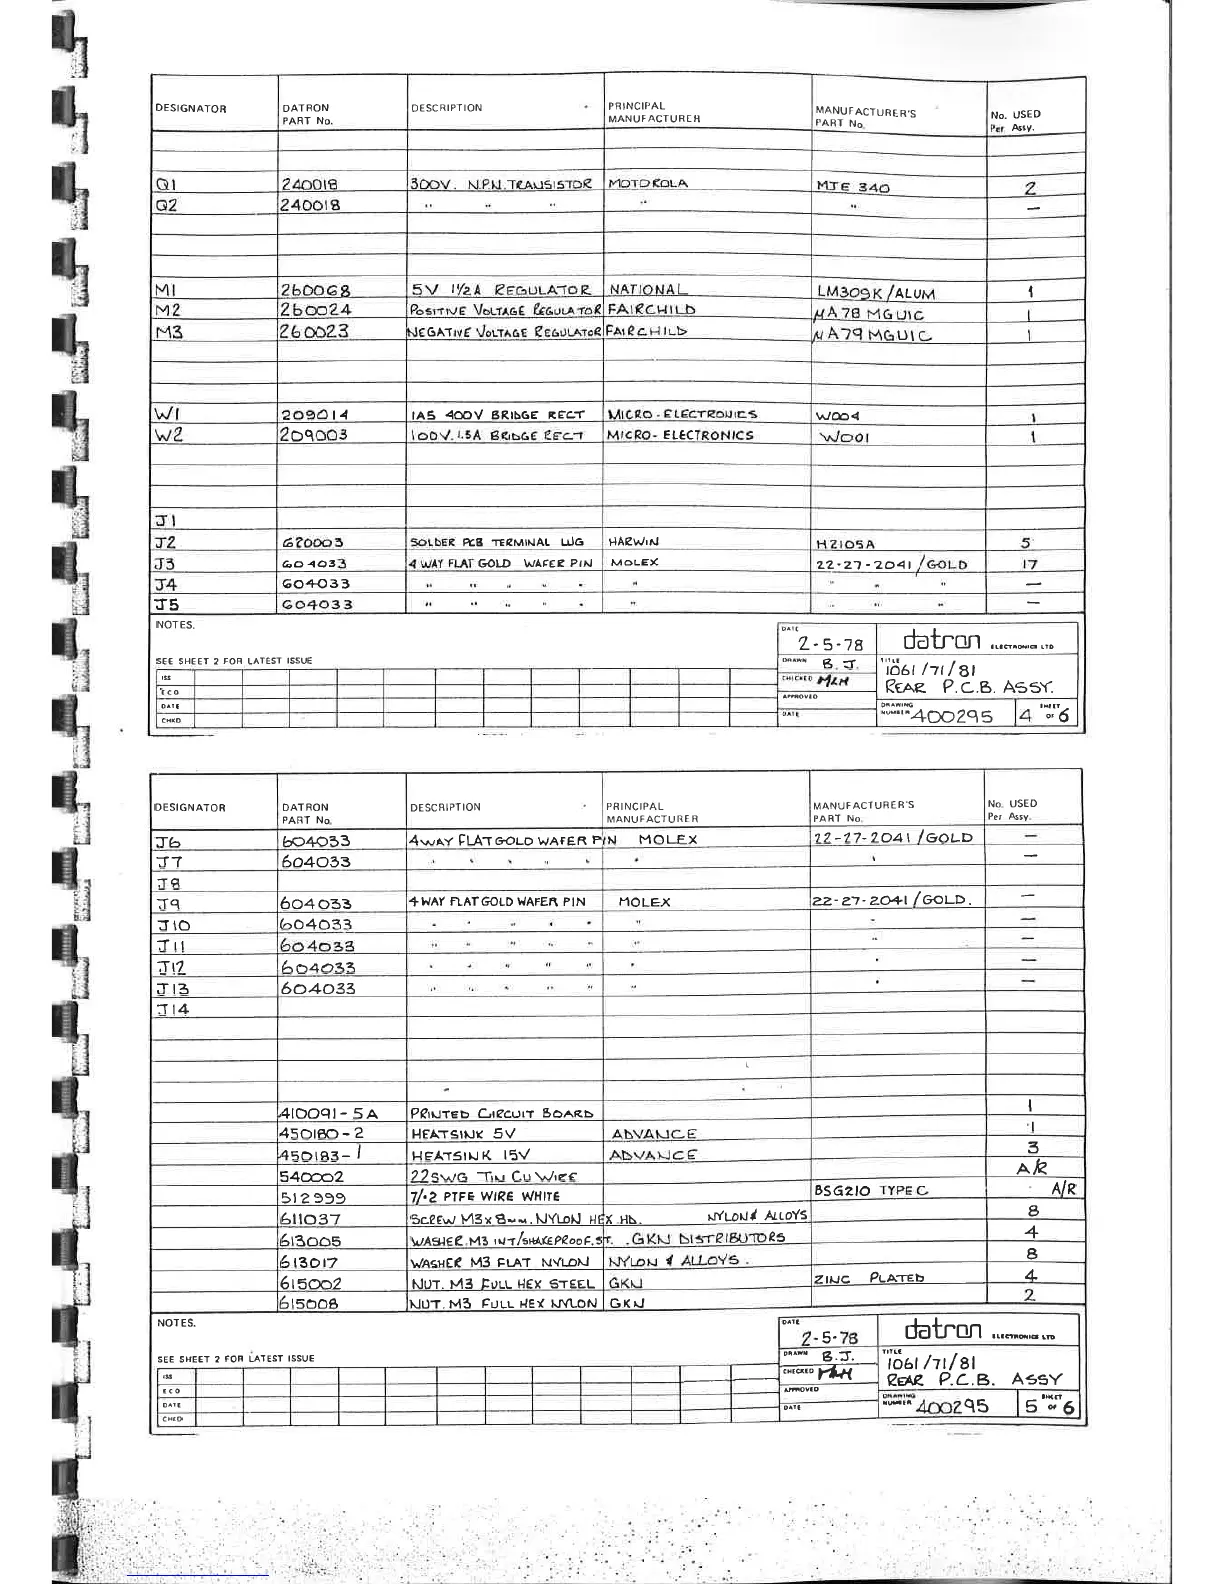 DESIGNATOR DATRON PART No. DESCRIPTION PRINCIPAL MANUFACTURER MANUFACTURER'S PART No. No. USED Per Assy.
Q1 240018 300V. N.P.N. TRANSISTOR MOTOROLA MJE 340 2
Q2 240018 " " " " " —
M1 260068 5V 1½A REGULATOR NATIONAL LM309K/ALUM 1
M2 260024 POSITIVE VOLTAGE REGULATOR FAIRCHILD µA78MGU1C 1
M3 260023 NEGATIVE VOLTAGE REGULATOR FAIRCHILD µA79MGU1C 1
W1 209014 1A5 400V BRIDGE RECT MICRO-ELECTRONICS W004 1
W2 209003 100V. 1.5A BRIDGE RECT MICRO-ELECTRONICS W001 1
J1
J2 620003 SOLDER PCB TERMINAL LUG HARWIN H2105A 5
J3 604033 4 WAY FLAT GOLD WAFER PIN MOLEX 22-27-2041/GOLD 17
J4 604033 " " " " " " " " " —
J5 604033 " " " " " " " " " —
NOTES.
SEE SHEET 2 FOR LATEST ISSUE
ISS
ECO
DATE
CHKD
DATE 2-5-78
DRAWN B.J.
CHECKED MLH
APPROVED
DATE
datron ELECTRONICS LTD
TITLE 1061/71/81
REAR P.C.B. ASSY.
DRAWING NUMBER 400295 SHEET 4 OF 6
DESIGNATOR DATRON PART No. DESCRIPTION PRINCIPAL MANUFACTURER MANUFACTURER'S PART No. No. USED Per Assy.
J6 604033 4 WAY FLAT GOLD WAFER PIN MOLEX 22-27-2041/GOLD —
J7 604033 " " " " " " " —
J8
J9 604033 4 WAY FLAT GOLD WAFER PIN MOLEX 22-27-2041/GOLD. —
J10 604033 " " " " " " " —
J11 604033 " " " " " " " —
J12 604033 " " " " " " " —
J13 604033 " " " " " " " —
J14
410091-5A PRINTED CIRCUIT BOARD 1
450180-2 HEATSINK 5V ADVANCE 1
450183-1 HEATSINK 15V ADVANCE 3
540002 22SWG TIN CU WIRE A/R
512999 7/.2 PTFE WIRE WHITE BSG210 TYPE C A/R
611037 SCREW M3x8mm. NYLON HEX HD. NYLON & ALLOYS 8
613005 WASHER. M3 INT/SHAKEPROOF. ST. GKN DISTRIBUTORS 4
613017 WASHER M3 FLAT NYLON NYLON & ALLOYS. 8
615002 NUT. M3 FULL HEX STEEL GKN ZINC PLATED 4
615008 NUT. M3 FULL HEX NYLON GKN 2
NOTES.
SEE SHEET 2 FOR LATEST ISSUE
ISS
ECO
DATE
CHKD
DATE 2-5-78
DRAWN B.J.
CHECKED MLH
APPROVED
DATE
datron ELECTRONICS LTD
TITLE 1061/71/81
REAR P.C.B. ASSY
DRAWING NUMBER 400295 SHEET 5 OF 6